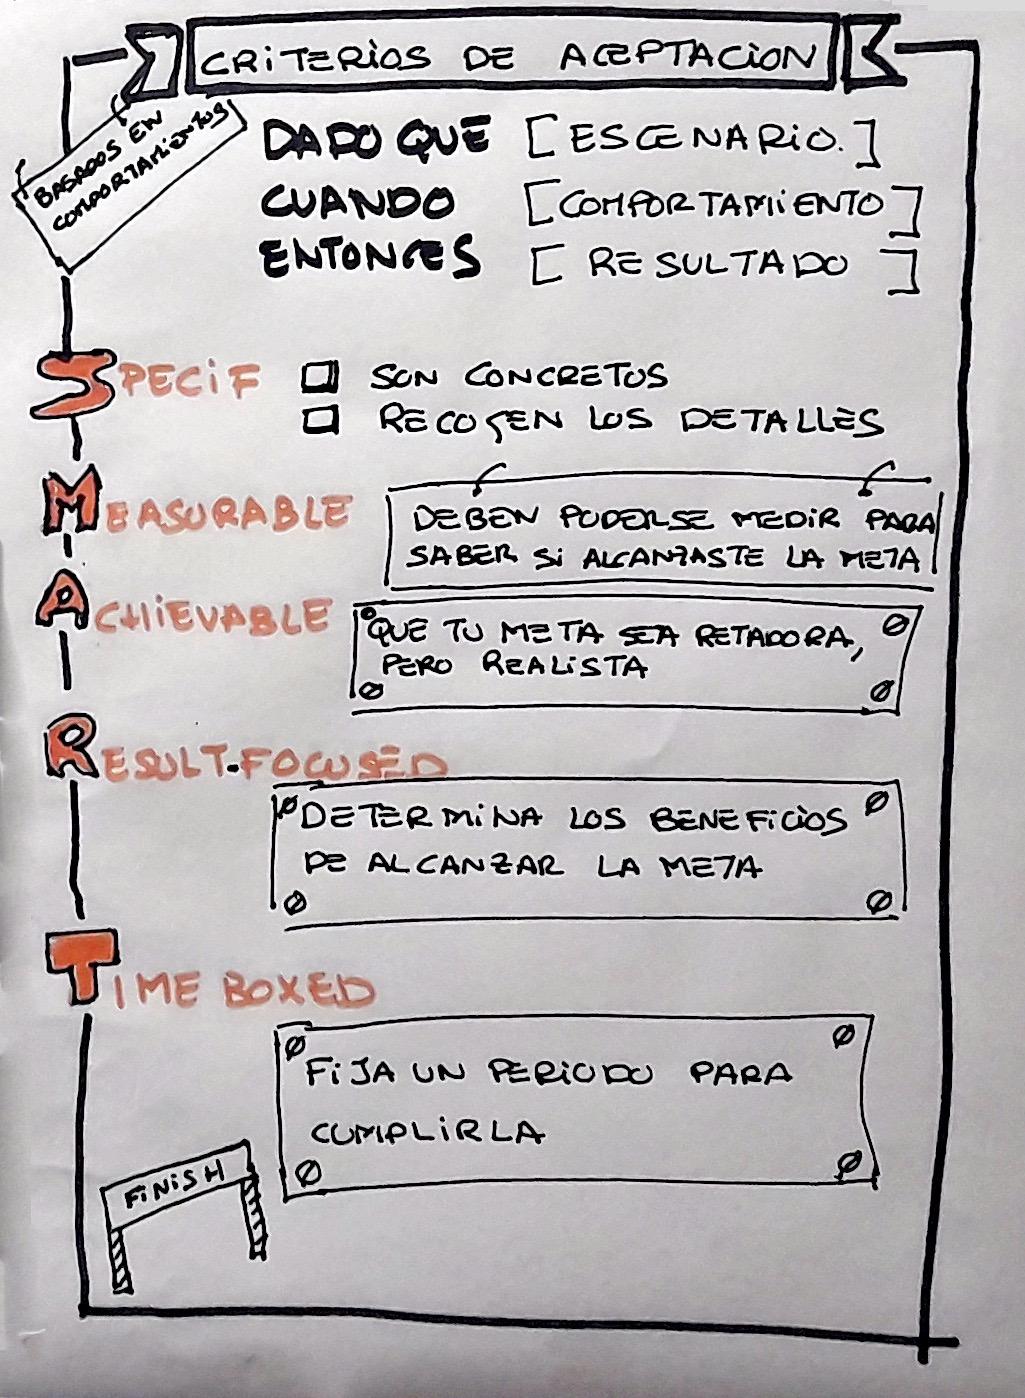 CRITERIOS DE ACEPTACION
BASADOS EN
COMPORTAMIENTOS
DADO QUE [ESCENARIO.]
CUANDO [COMPORTAMIENTO]
ENTONCES [RESULTADO]
SPECIF
SON CONCRETOS
RECOGEN LOS DETALLES
MEASURABLE
DEBEN PODERSE MEDIR PARA
SABER SI ALCANZASTE LA META
ACHIEVABLE
QUE TU META SEA RETADORA,
PERO REALISTA
RESULT-FOCUSED
DETERMINA LOS BENEFICIOS
DE ALCANZAR LA META
TIME BOXED
FIJA UN PERIODO PARA
CUMPLIRLA
FINISH